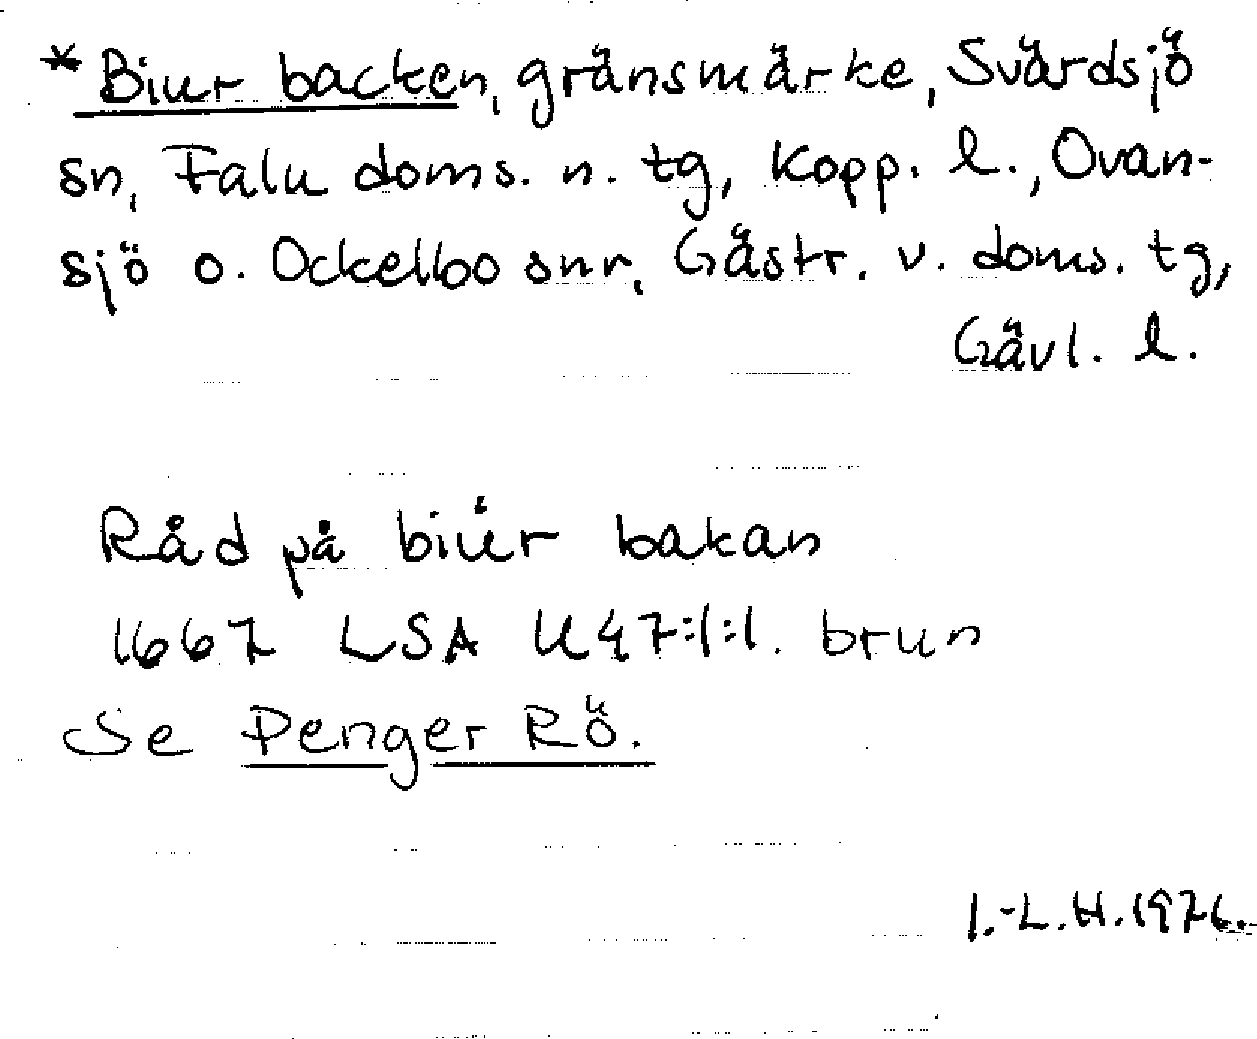 *Biur backen, gränsmärke, Svärdsjö
sn, Falu doms. n. tg, Kopp. l., Ovan-
sjö o. Ockelbo snr, Gästr. v. doms. tg,
Gävl. l.
Råd på biúr bakan
1667 LSA U47:1:1. brun
Se Penger Rö.
I.-L.H.1976.